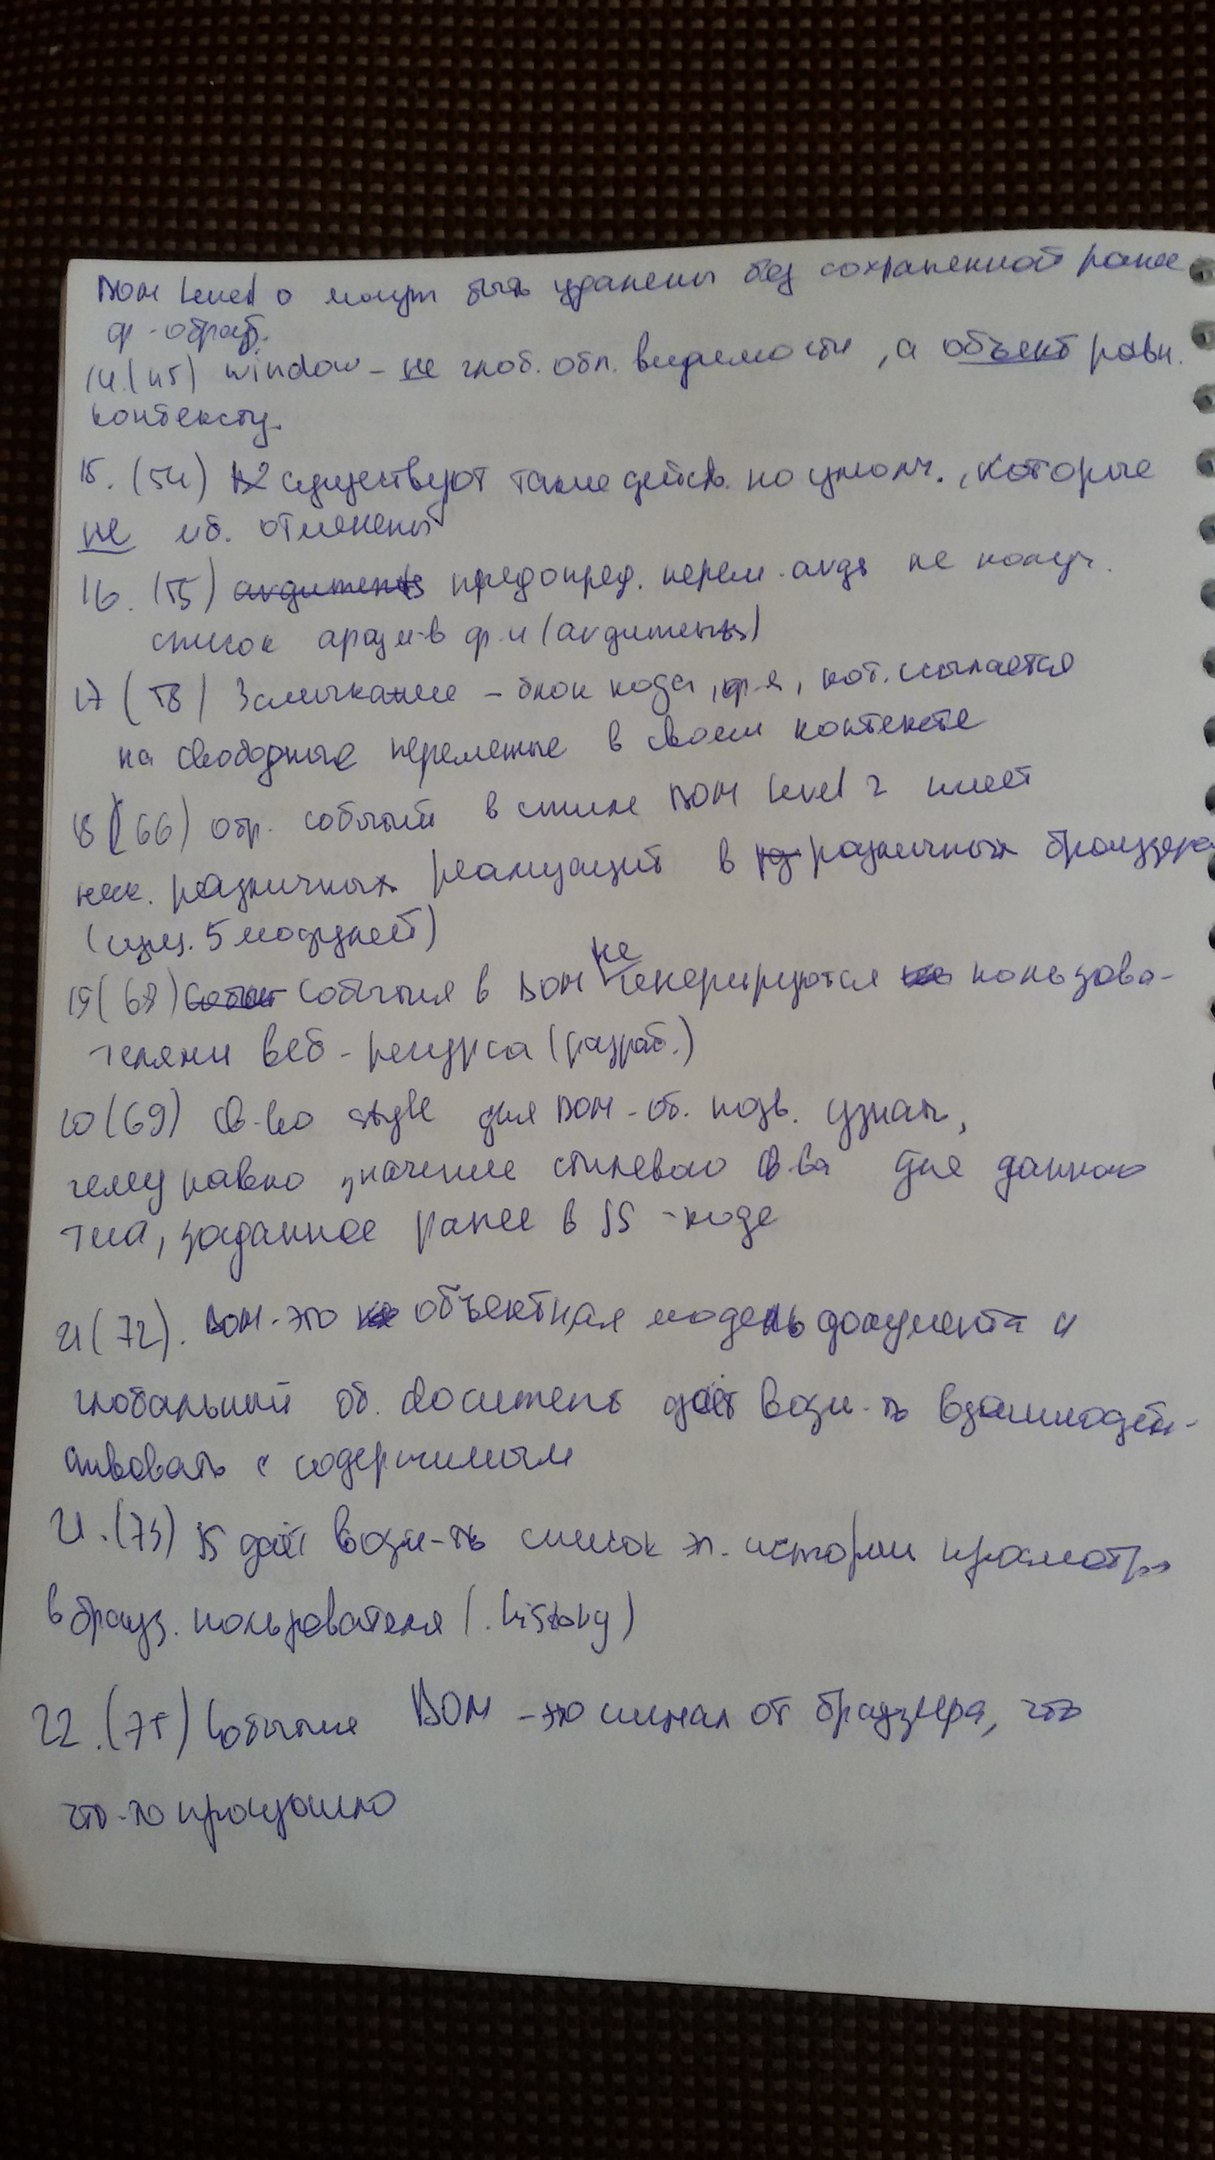 DOM Level 0 могут быть удалены без сохраненной ранее
ф-обраб.
14.(45) window - не глоб. обл. видимости, а объект равн.
контексту.
15. (54) существуют такие действ. по умолч., которые
не мб. отменены
16. (55) arguments предопред. перем. args не получ.
список аргум-в ф-и (arguments)
17 (58) Замыкание - блок кода, ф-я, кот. ссылается
на свободные переменные в своем контексте
18 (66) обр. событий в стиле DOM Level 2 имеет
неск. различных реализаций в различных браузерах
(спец. 5 модулей)
19 (68) события в DOM не генерируются пользова-
телями веб-ресурса (разраб.)
20 (69) св-во style для DOM-об. позв. узнать,
чему равно значение стилевого св-ва для данного
тега, заданное ранее в JS-коде
21 (72). DOM-это объектная модель документа и
глобальный об. document даёт возм-ть взаимодей-
ствовать с содержимым
21.(73) JS даёт возм-ть список эл. истории просмотра
в брауз. пользователя (.history)
22.(75) Событие DOM - это сигнал от браузера, что
что-то произошло